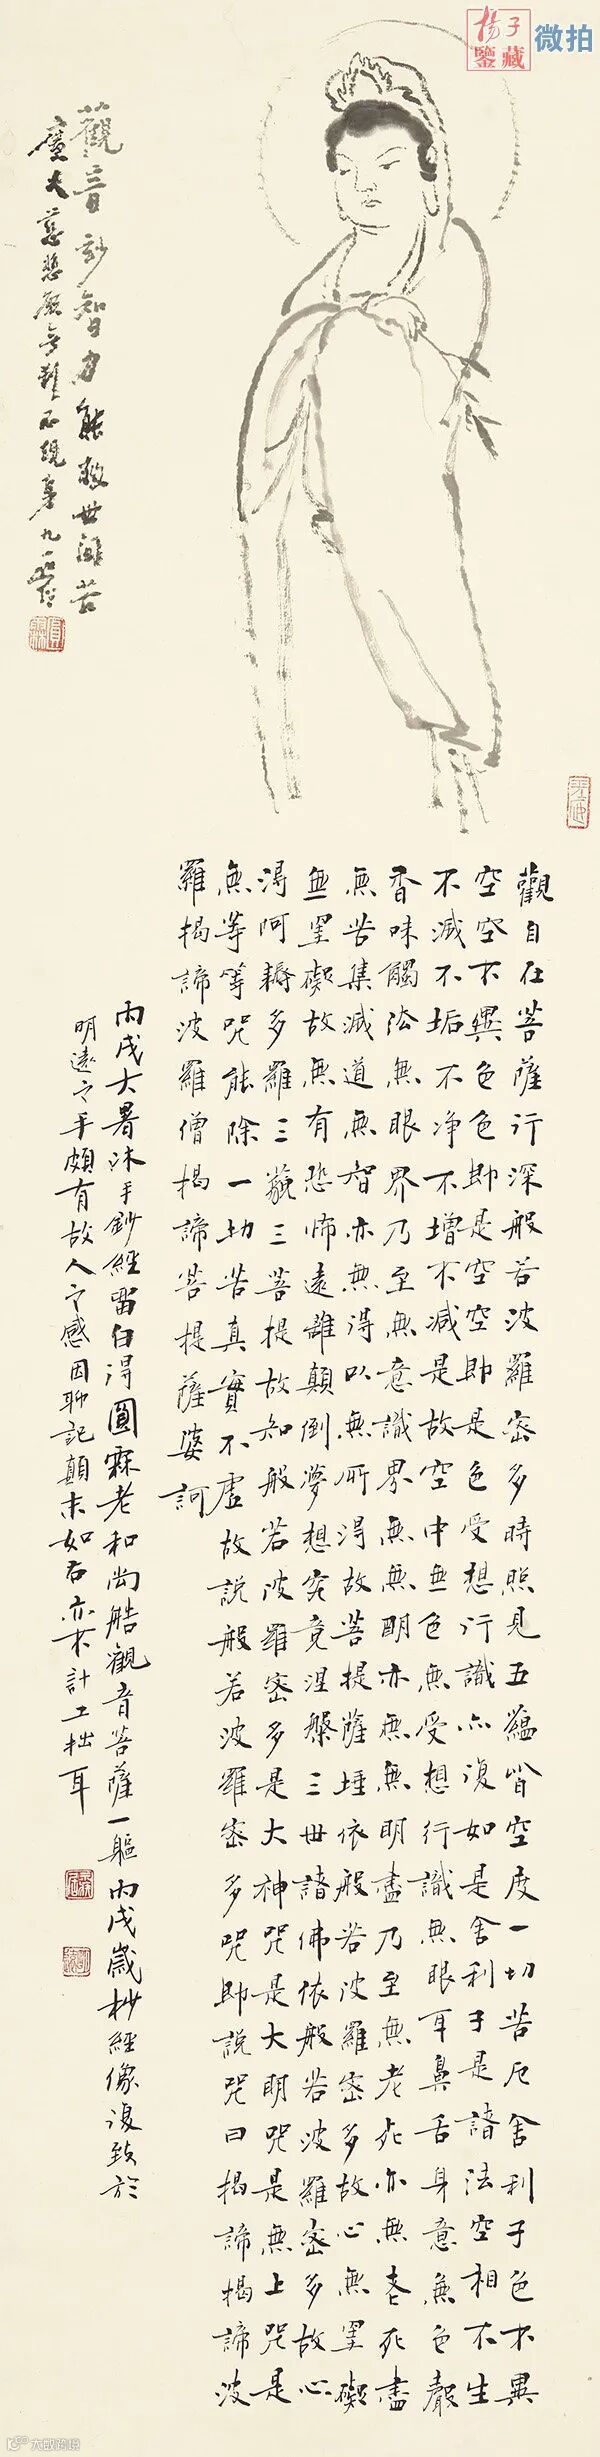 揚子
鑒藏
微拍
觀音妙智力能救世間苦
廣大慈悲願無刹不現身九一
觀自在菩薩行深般若波羅密多時照見五蘊皆空度一切苦厄舍利子色不異
空空不異色色即是空空即是色受想行識亦復如是舍利子是諸法空相不生
不滅不垢不淨不增不減是故空中無色無受想行識無眼耳鼻舌身意無色聲
香味觸法無眼界乃至無意識界無無明亦無無明盡乃至無老死亦無老死盡
無苦集滅道無智亦無得以無所得故菩提薩埵依般若波羅密多故心無罣礙
無罣礙故無有恐怖遠離顛倒夢想究竟涅槃三世諸佛依般若波羅密多故心
得阿耨多羅三藐三菩提故知般若波羅密多是大神咒是大明咒是無上咒是
無等等咒能除一切苦真實不虛故說般若波羅密多咒即說咒曰揭諦揭諦波
羅揭諦波羅僧揭諦菩提薩婆訶
丙戌大暑沐手鈔經留白得圓霖老和尚觀音菩薩一軀丙戌歲杪經像復致於
明遠之手頗有故人之感因聊記顛末如右亦不計工拙耳
大咖跨境